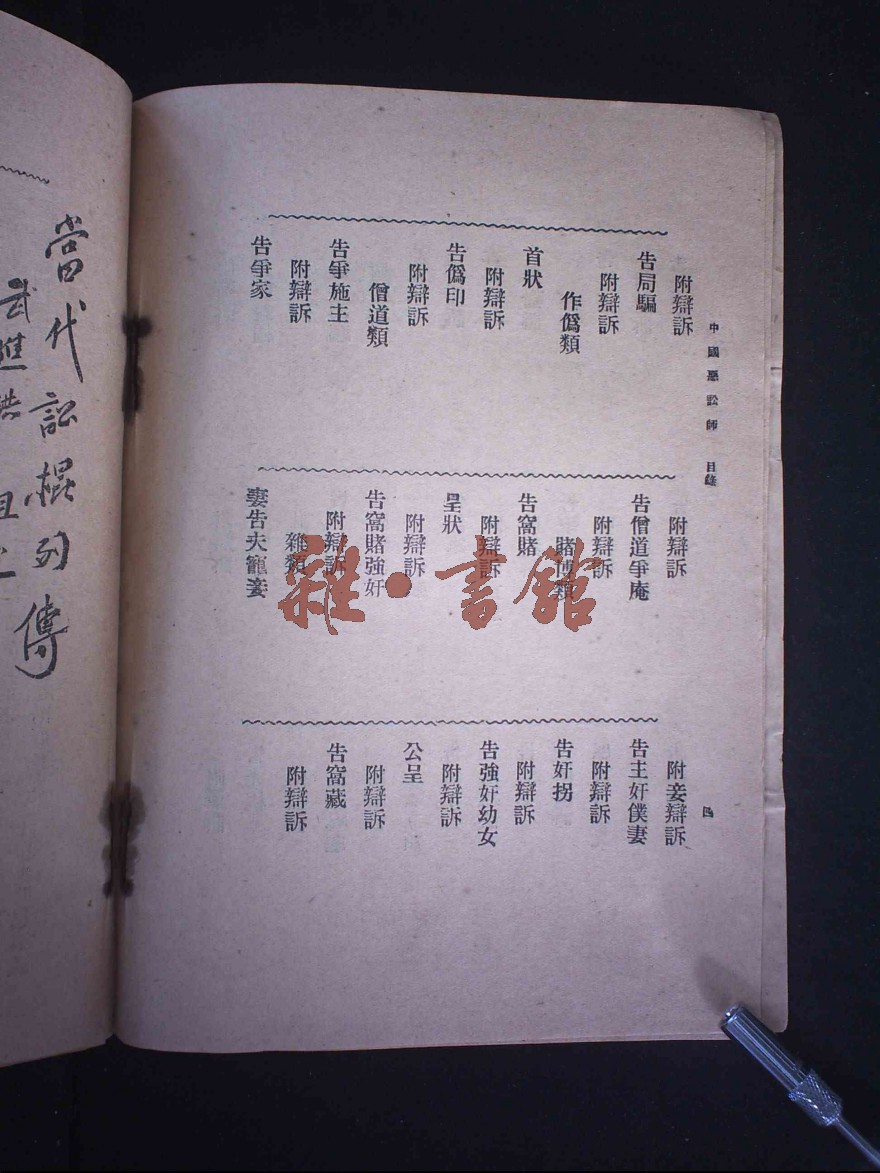 中國惡訟師 目錄
四
附辯訴
告局騙
附辯訴
作僞類
首狀
附辯訴
告僞印
附辯訴
僧道類
告爭施主
附辯訴
告爭家
附辯訴
告僧道爭庵
附辯訴
賭博類
告窩賭
附辯訴
呈狀
附辯訴
告窩賭強奸
附辯訴
雜類
妻告夫寵妾
附妾辯訴
告主奸僕妻
附辯訴
告奸拐
附辯訴
告強奸幼女
附辯訴
公呈
附辯訴
告窩藏
附辯訴
雜·書館
當代訟棍列傳
武進